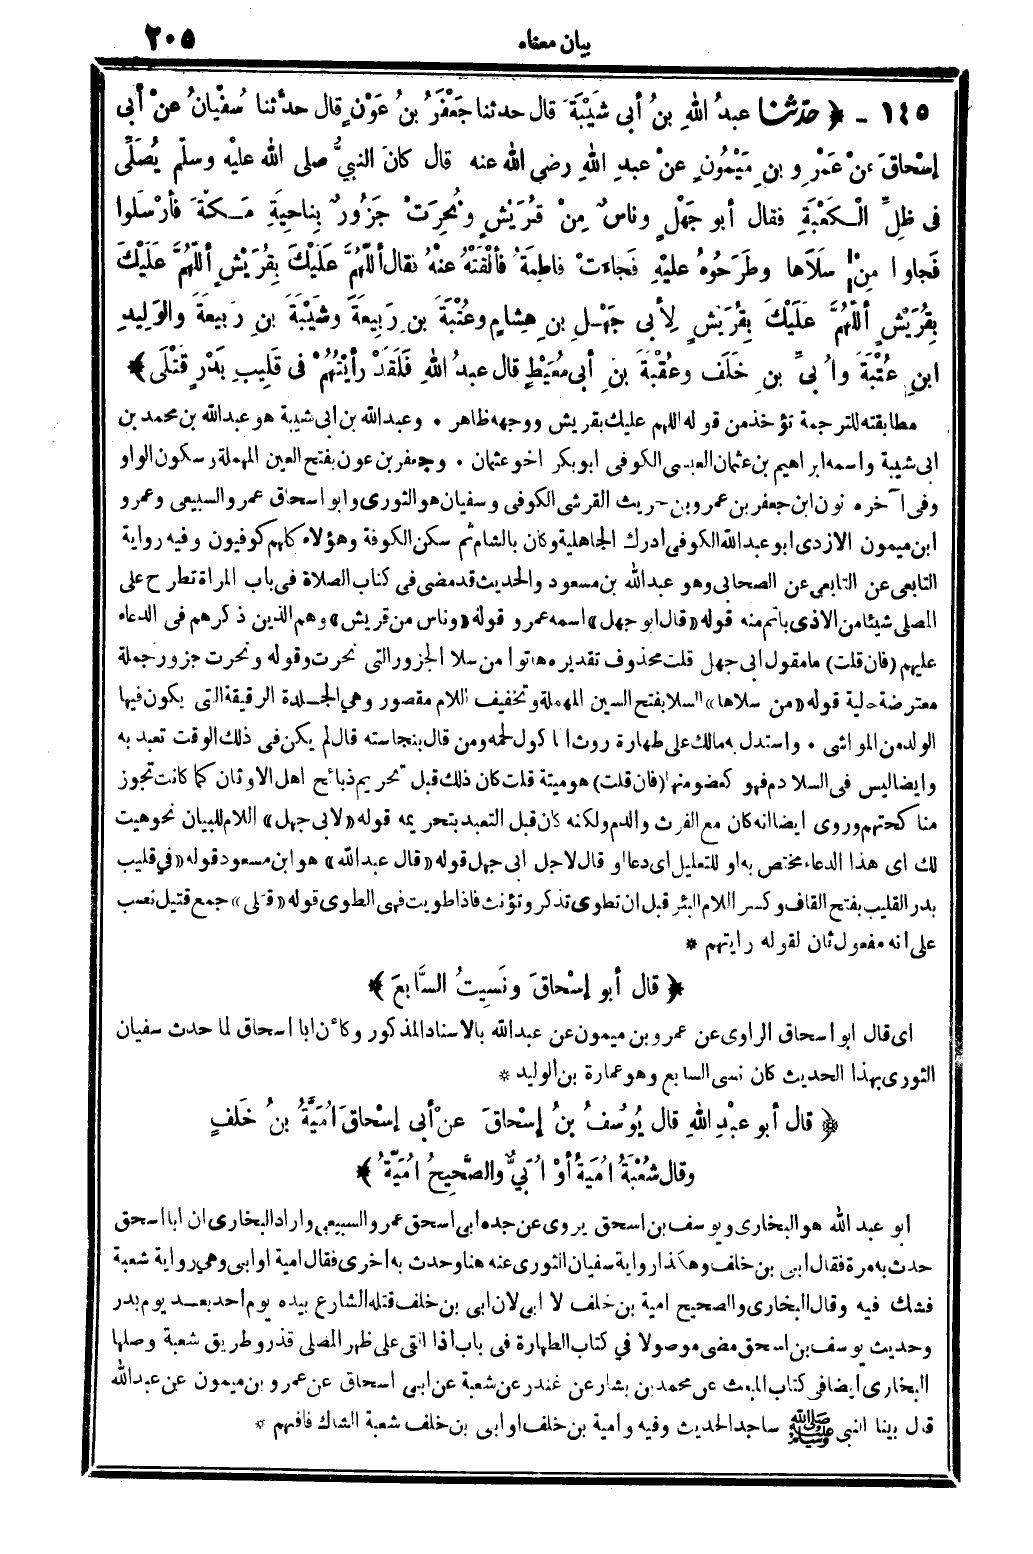 بيان معناه ٢٠٥
١٤٥ - ﴿ حَدَّثَنا عبدُ اللهِ بنُ أبى شَيْبَةَ قال حدثنا جَعْفَرُ بنُ عَوْنٍ قال حدَّثنا سُفْيانُ عنْ أبى
إسْحاقَ عنْ عَمْرِ و بنِ مَيْمُونٍ عنْ عبدِ اللهِ رضى الله عنه قال كانَ النبىُّ صلى الله عليْه وسلّم يُصَلِّى
فى ظلِّ الْكَعْبَةِ فقال أبو جَهْلٍ وناسٌ مِنْ قُرَيْشٍ ونُحِرَتْ جَزُورٌ بِناحِيَةِ مَكَّةَ فأرْسَلُوا
فَجاوا مِنْ سَلَاها وطَرَحُوهُ عليْهِ فَجاءَتْ فاطِمَةُ فألْقَتْهُ عنْهُ فقال أللَّهُمَّ عَلَيْكَ بِقُرَيْشٍ أللَّهُمَّ عَلَيْكَ
بِقُرَيْشٍ أللَّهُمَّ عَلَيْكَ بِقُرَيْشٍ لِأبى جَهْلِ بنِ هِشامٍ وعُتْبَةَ بنِ رَبِيعَةَ وشَيْبَةَ بنِ رَبِيعَةَ والوَلِيدِ
ابنِ عُتْبَةَ وأُبىِّ بنِ خَلَفٍ وعُقْبَةَ بنِ أبى مُعَيْطٍ قال عبدُ اللهِ فَلَقَدْ رأيْتُهُمْ فى قَلِيبِ بَدْرٍ قَتْلَى ﴾
مطابقته للترجمة تؤخذ من قوله اللهم عليك بقريش ووجهه ظاهر . وعبدالله بن أبى شيبة هو عبدالله بن محمد بن
ابى شيبة واسمه ابراهيم بن عثمان العبسى الكوفى ابو بكر اخو عثمان . وجعفر بن عون بفتح العين المهملة وسكون الواو
وفى آخره نون ابن جعفر بن عمرو بن حريث القرشى الكوفى وسفيان هو الثورى وابو اسحاق عمرو السبيعى وعمرو
ابن ميمون الازدى ابو عبدالله الكوفى أدرك الجاهلية وكان بالشام ثم سكن الكوفة وهؤلاء كلهم كوفيون وفيه رواية
التابعى عن التابعى عن الصحابى وهو عبدالله بن مسعود والحديث قد مضى فى كتاب الصلاة فى باب المراة تطرح على
المصلى شيئا من الاذى باتم منه قوله «قال ابو جهل» اسمه عمرو قوله «وناس من قريش» وهم الذين ذكرهم فى الدعاء
عليهم (فان قلت) ما مقول ابى جهل قلت محذوف تقديره هاتوا من سلا الجزور التى نحرت وقوله ونحرت جزور جملة
معترضة حلية قوله «من سلاها» السلا بفتح السين المهملة وتخفيف اللام مقصور وهى الجلدة الرقيقة التى يكون فيها
الولد من المواشى . واستدل به مالك على طهارة روث الما كول لحمه ومن قال بنجاسته قال لم يكن فى ذلك الوقت تعبد به
وايضا ليس فى السلا دم فهو كعضو منها (فان قلت) هو ميتة قلت كان ذلك قبل تحريم ذبائح اهل الاوثان كما كانت تجوز
منا كحتهم وروى ايضا انه كان مع الفرث والدم ولكنه كان قبل التعبد بتحريمه قوله «لابى جهل» اللام للبيان نحو هيت
لك اى هذا الدعاء مختص به او للتعليل اى دعا او قال لاجل ابى جهل قوله «قال عبد الله» هو ابن مسعود قوله «فى قليب
بدر القليب بفتح القاف وكسر اللام البئر قبل ان تطوى تذكر وتؤنث فاذا طويت فهى الطوى قوله «قتلى» جمع قتيل نصب
على انه مفعول ثان لقوله رايتهم *
﴿ قال أبو إسْحاقَ ونَسِيتُ السَّابِعَ ﴾
اى قال ابو اسحاق الراوى عن عمرو بن ميمون عن عبدالله بالاسناد المذكور وكأن ابا اسحاق لما حدث سفيان
الثورى بهذا الحديث كان نسى السابع وهو عمارة بن الوليد *
﴿ قال أبو عبْدِ اللهِ قال يُوسُفُ بنُ إسْحاقَ عنْ أبى إسْحاقَ أُمَيَّةُ بنُ خَلَفٍ
وقال شُعْبَةُ أُمَيَّةُ أوْ أُبَىٌّ والصَّحِيحُ أُمَيَّةُ ﴾
ابو عبد الله هو البخارى ويوسف بن اسحق يروى عن جده ابى اسحق عمرو السبيعى واراد البخارى ان ابا اسحق
حدث به مرة فقال ابى بن خلف وهكذا رواية سفيان الثورى عنه هنا وحدث به أخرى فقال امية او ابى وهى رواية شعبة
فشك فيه وقال البخارى والصحيح امية بن خلف لا ابى لان ابى بن خلف قتله الشارع بيده يوم احد بعد يوم بدر
وحديث يوسف بن اسحق مضى موصولا في كتاب الطهارة فى باب أذا القى على ظهر المصلى قذر وطريق شعبة وصلها
البخارى أيضا فى كتاب المبعث عن محمد بن بشار عن غندر عن شعبة عن ابى اسحاق عن عمرو بن ميمون عن عبدالله
قال بينا النبى ﷺ ساجد الحديث وفيه وامية بن خلف او ابى بن خلف شعبة الشاك فافهم *